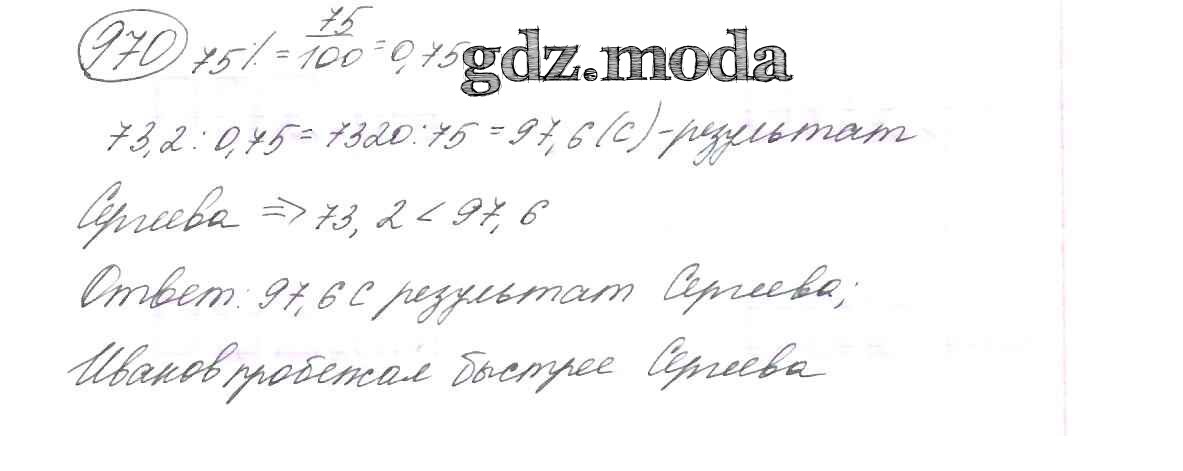 970 75% = 75/100 = 0,75 gdz.moda
73,2 : 0,75 = 7320 : 75 = 97,6 (с) - результат
Сергеева => 73,2 < 97,6
Ответ: 97,6 с результат Сергеева;
Иванов пробежал быстрее Сергеева